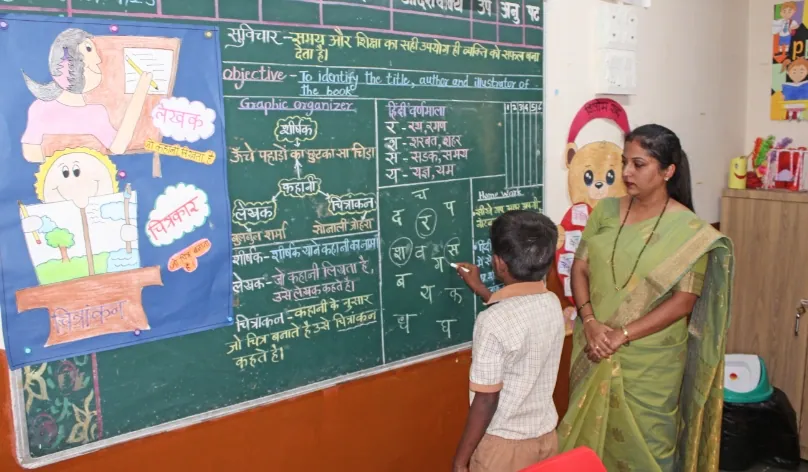 उप
सुविचार - समय और शिक्षा का सही उपयोग ही व्यक्ति को सफल बना
देता है।
objective - To identify the title, author and illustrator of
the book
Graphic organizer
शीर्षक
ऊँचे पहाड़ो का छुटका सा चिड़ा
कहानी
लेखक
चित्रकार
शर्मा
सोनाली
शीर्षक - शीर्षक याने कहानी का नाम
लेखक - जो कहानी लिखता है,
उसे लेखक कहते है।
चित्रांकन - कहानी के नुसार
जो चित्र बनाते है उसे चित्रांकन
कहते है।
हिंदी वर्णमाला
र - रथ, रगण
श - शरबत, शहर
स - सडक, समय
य - यज्ञ, यम
1 2 3 4 5 6
च
द
र
प
श
व
स
ग
ब
य
क
ध
घ
Home Work
लेखक
जो कहानी लिखता है
चित्रकार
चित्रांकन